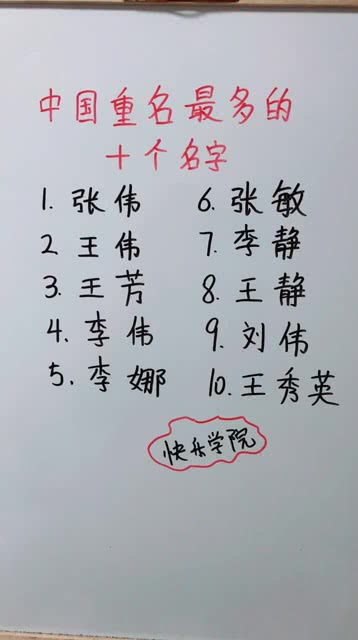 中国重名最多的
十个名字
1. 张伟
2 王伟
3. 王芳
4. 李伟
5. 李娜
6. 张敏
7. 李静
8. 王静
9. 刘伟
10. 王秀英
快乐学院